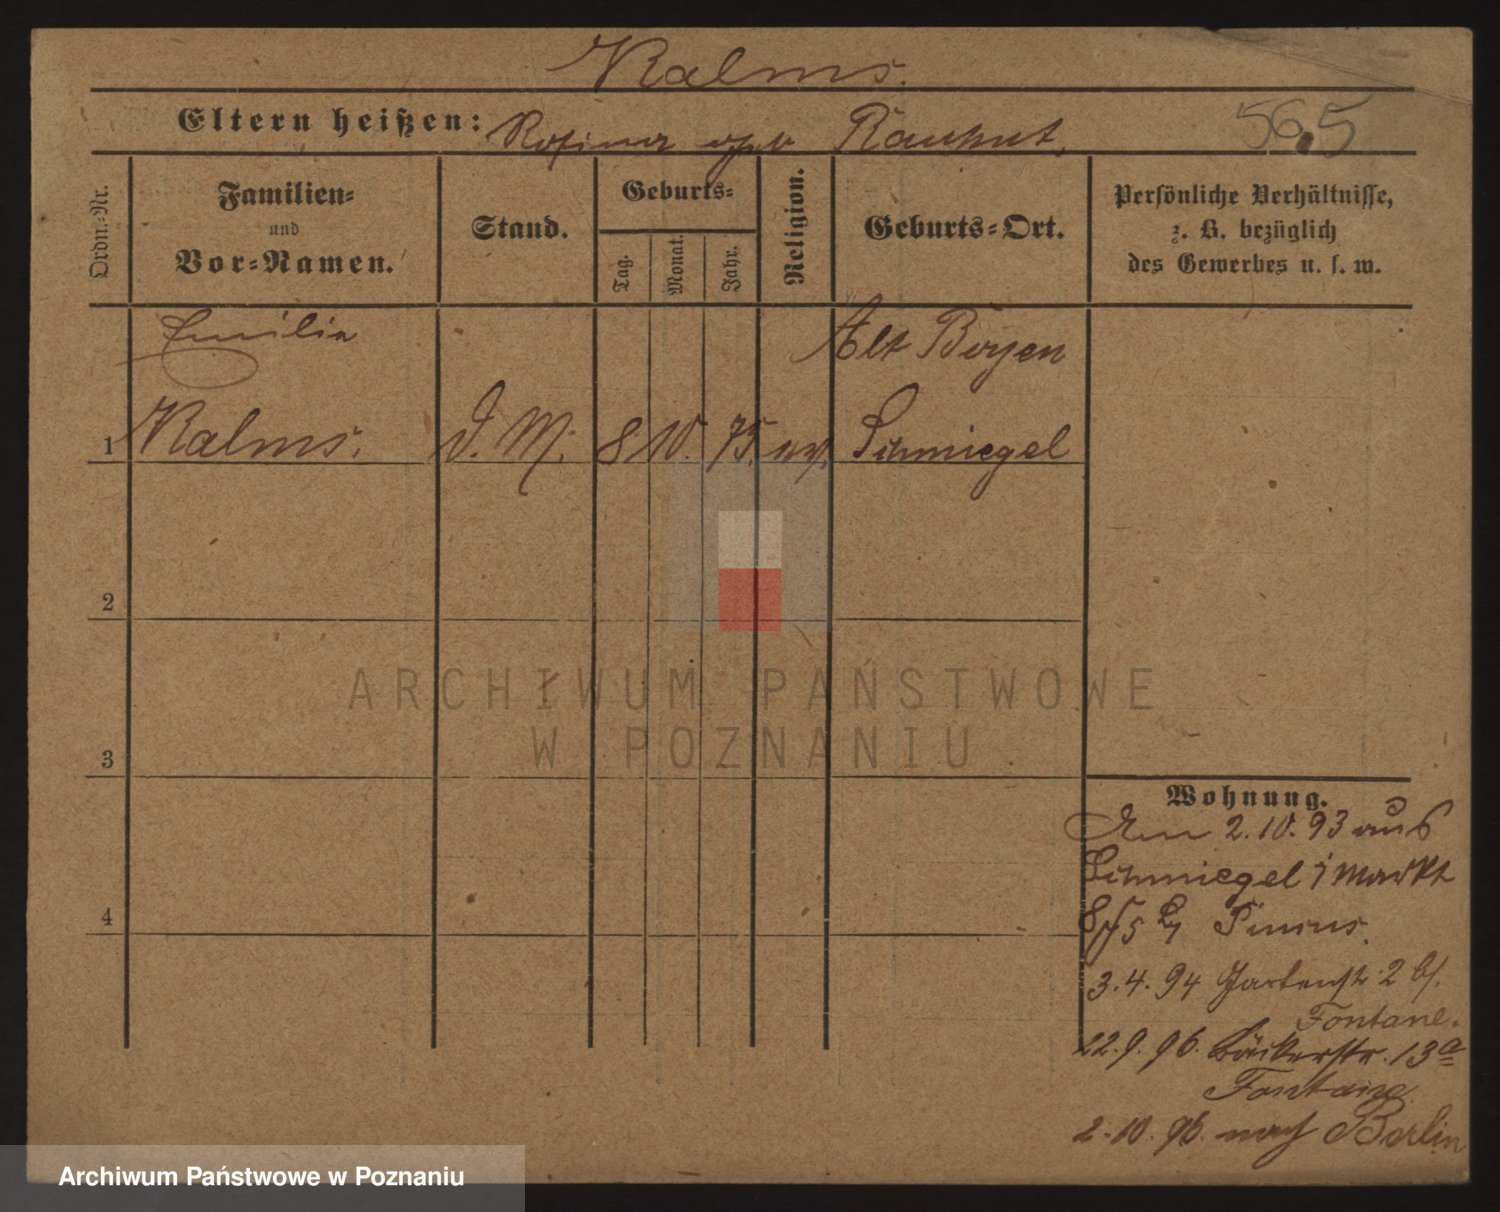 Kalms.
Eltern heißen: Rosina geb Rauhut.
565
Ordn.=Nr.
Familien=
und
Vor=Namen.
Stand.
Geburts=
Tag.
Monat.
Jahr.
Religion.
Geburts=Ort.
Persönliche Verhältnisse,
z. B. bezüglich
des Gewerbes u. s. w.
Emilie Alt Boyen
1 Kalms. d. M. 8 10. 75. ev. Schmiegel
2
ARCHIWUM PAŃSTWOWE
W POZNANIU
3
Wohnung.
Am 2.10.93 aus
Schmiegel / Markt
Pincus.
4
3.4.94 Gartenstr. 2 bei
Fontane.
22.9.96. Bäckerstr. 13a
Fontane
2.10.96. nach Berlin
Archiwum Państwowe w Poznaniu